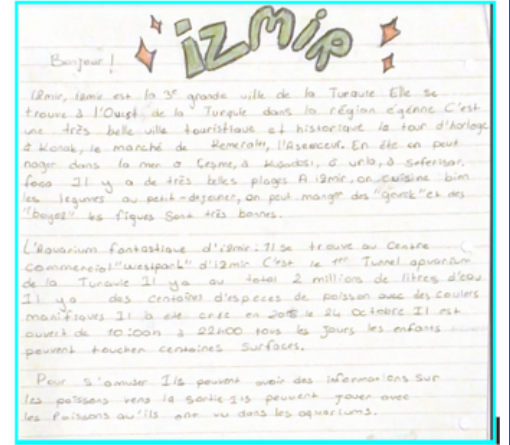 İZMİR
Bonjour !
izmir, izmir est la 3e grande ville de la Turquie Elle se
trouve à l'Ouest de la Turquie dans la région égénne C'est
une très belle ville touristique et historique la tour d'horloge
à Konak, le marché de Kemeraltı, l'Asenceur. En été on peut
nager dans la mer à Çeşme, à Kuşadası, à urla, à Seferisar,
foça Il y a de très belles plages A izmir, on cuisine bien
les legumes au petit-dejeuner, on peut manger des "gevrek" et des
"boyoz" les figues sont très bonnes.
L'Aquarium fantastique d'izmir : Il se trouve au Centre
commercial "westpark" d'izmir C'est le 1er Tunnel aquarium
de la Turquie Il ya au total 2 millions de litres d'eau
Il ya des centaines d'especes de poisson avec des coulers
manifiques Il a été crée en le 24 octobre Il est
ouvert de 10:00h à 22h00 tous les jours les enfants
peuvent toucher centaines surfaces.
Pour s'amuser Ils peuvent avoir des informations sur
les poissons vers la sortie Ils peuvent jouer avec
les Poissons qu'ils ont vu dans les aquariums.